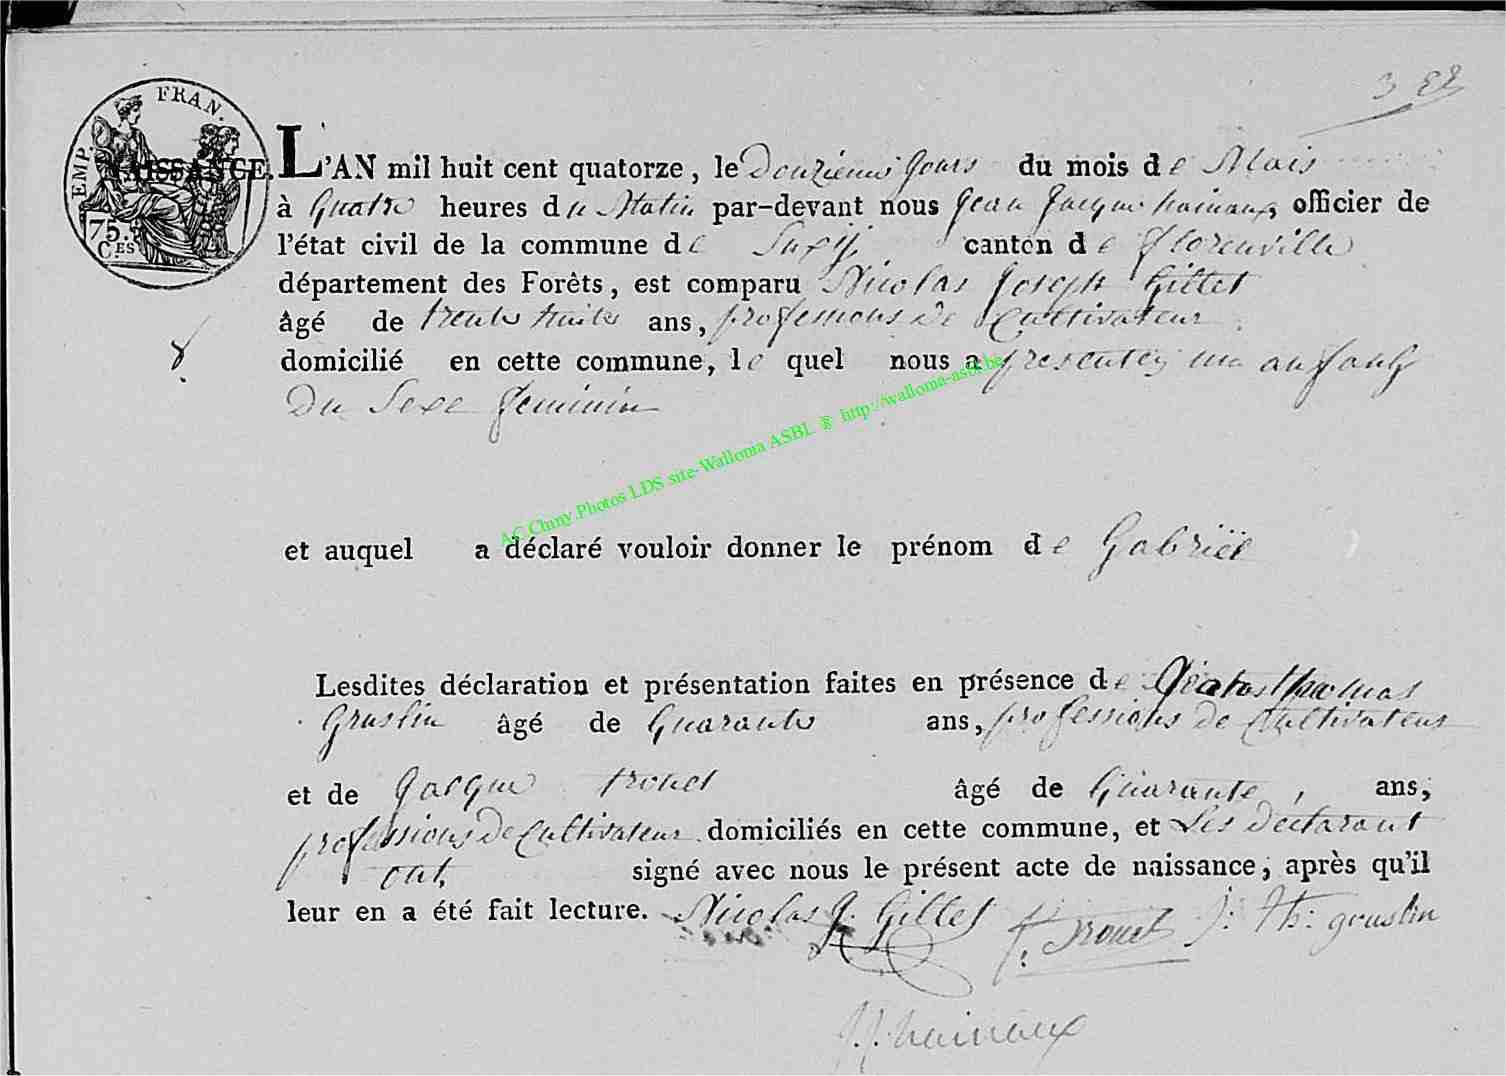 EMP. FRAN.
75. C.ES
NAISSANCE.
L'AN mil huit cent quatorze, le Douziemes Jours du mois de Mais
à Quatre heures du Matin par-devant nous Jean Jacque hainaux, officier de
l'état civil de la commune de Suxÿ canton de florenville
département des Forêts, est comparu Nicolas Joseph Gillet
âgé de trente huite ans, professions de Cultivateur
domicilié en cette commune, le quel nous a presentez un anfang
Du Sexe feminin
AC Chiny. Photos LDS site-Wallonia ASBL ® http://wallonia-asbl.be
et auquel a déclaré vouloir donner le prénom de Gabriël
Lesdites déclaration et présentation faites en présence de Thomas
Grustin âgé de Quarante ans, professions de Cultivateur
et de Jacque trouet âgé de Quarante, ans,
professions de Cultivateur domiciliés en cette commune, et Les Declarant
ont signé avec nous le présent acte de naissance, après qu'il
leur en a été fait lecture. Nicolas J. Gillet J. Trouet J: Th: grustin
J. J. hainaux